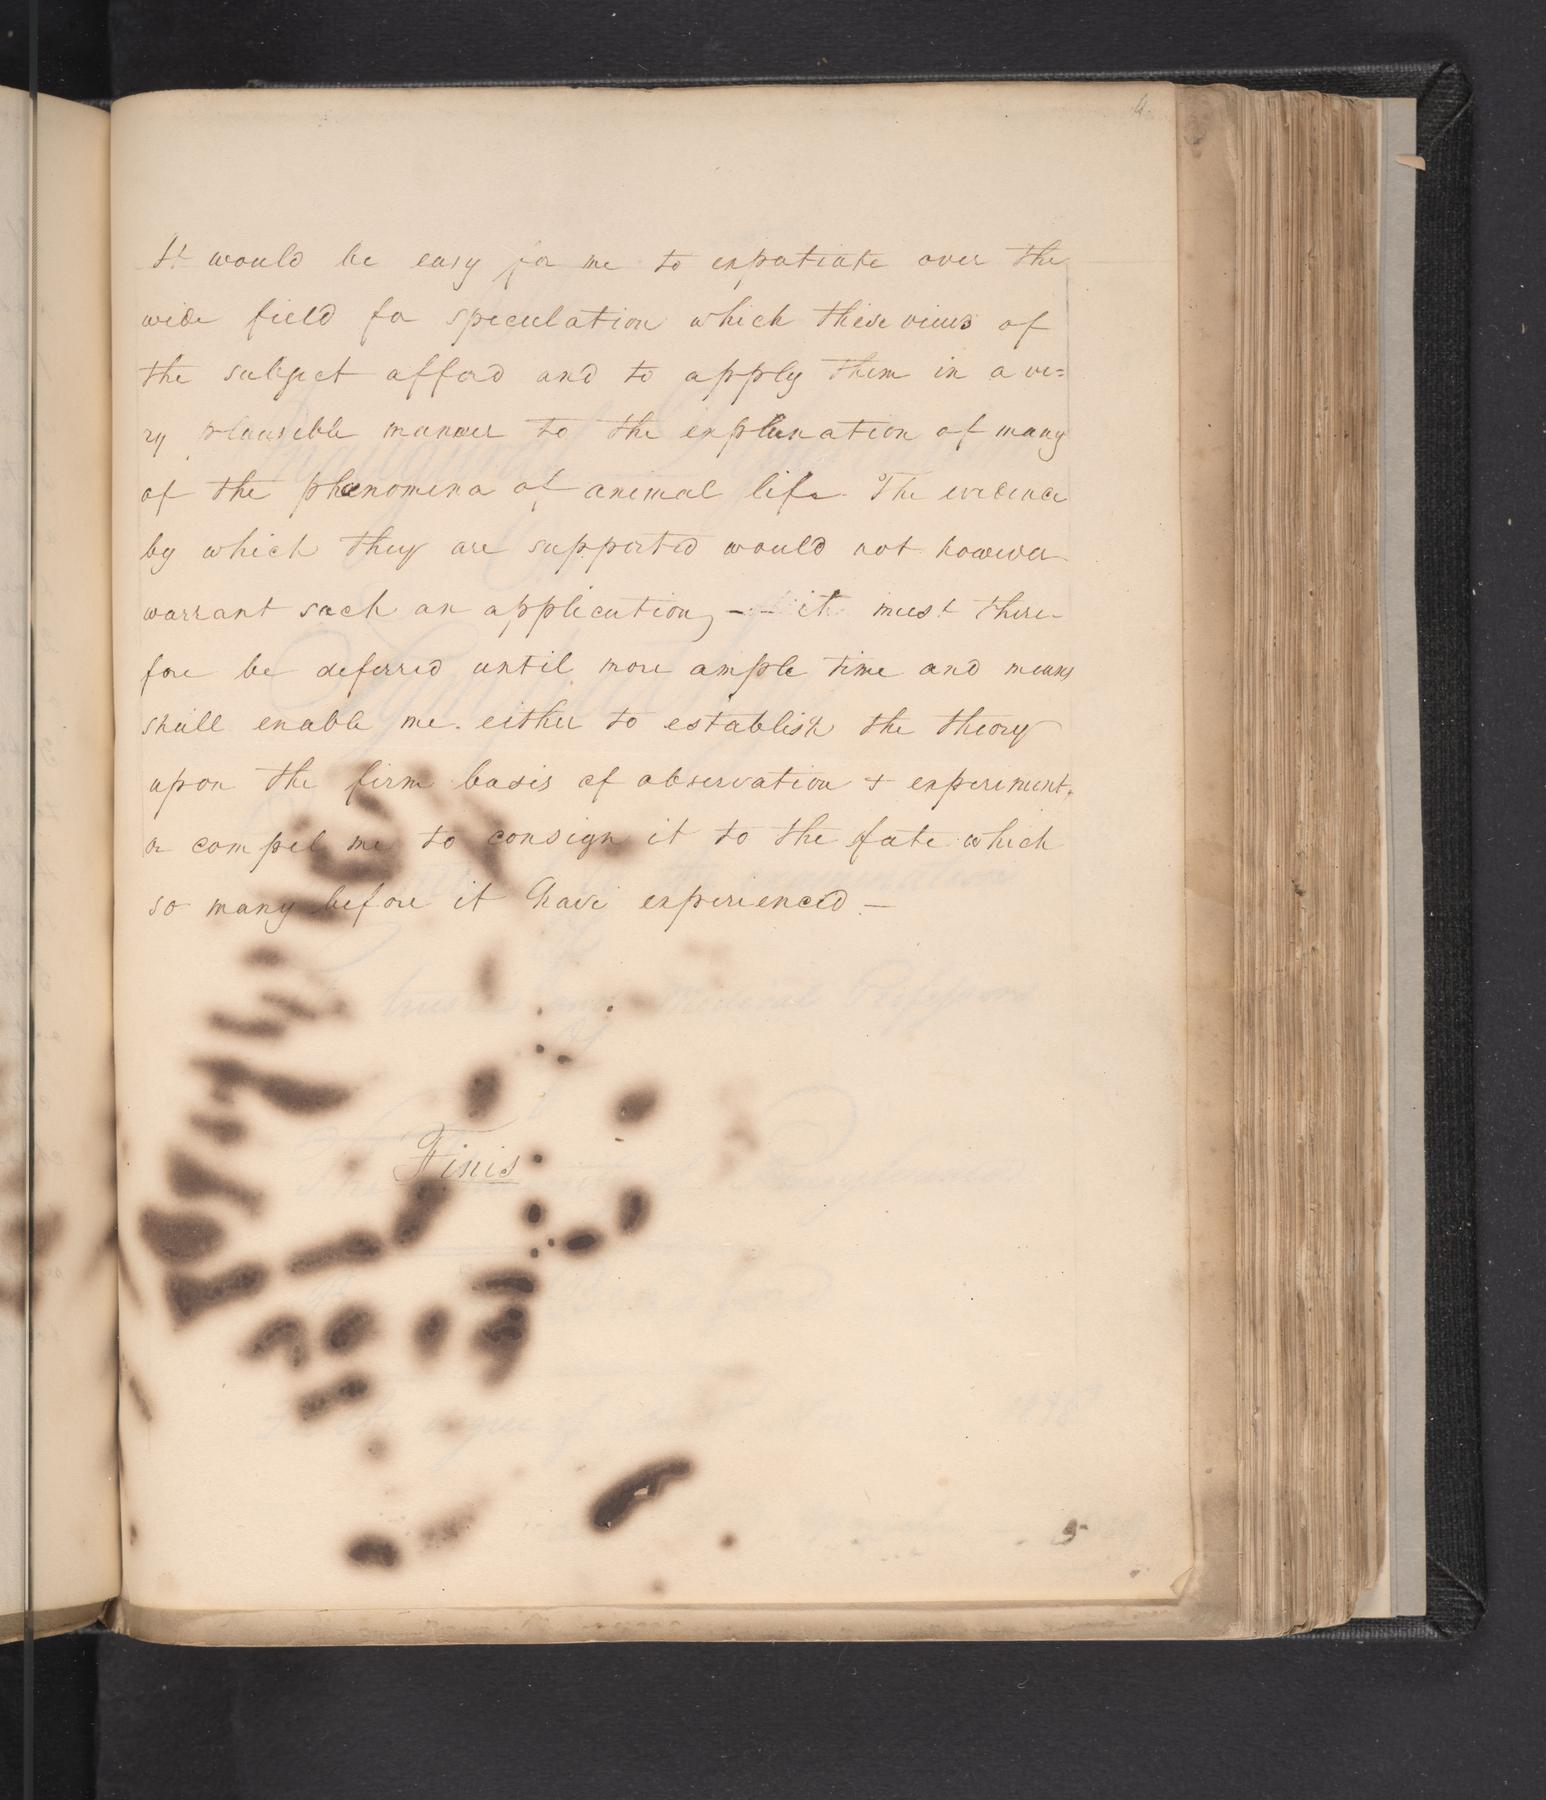 It would be easy for me to expatiate over the
wide field for speculation which these views of
the subject afford and to apply them in a ve=
ry plausible manner to the explanation of many
of the phænomena of animal life. The evidence
by which they are supported would not however
warrant such an application, — it must there-
fore be deferred until more ample time and means
shall enable me either to establish the theory
upon the firm basis of observation & experiment,
or compel me to consign it to the fate which
so many before it have experienced —
Finis
5